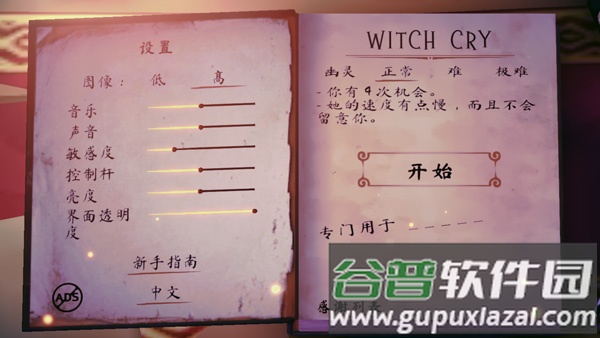 设置
图像： 低 高
音乐
声音
敏感度
控制杆
亮度
界面透明
度
新手指南
中文
ADS
WITCH CRY
幽灵 正常 难 极难
-你有4次机会。
-她的速度有点慢，而且不会
留意你。
开始
专门用于 _ _ _ _ _
感谢列表
谷普软件园
www.gupuxlazal.com